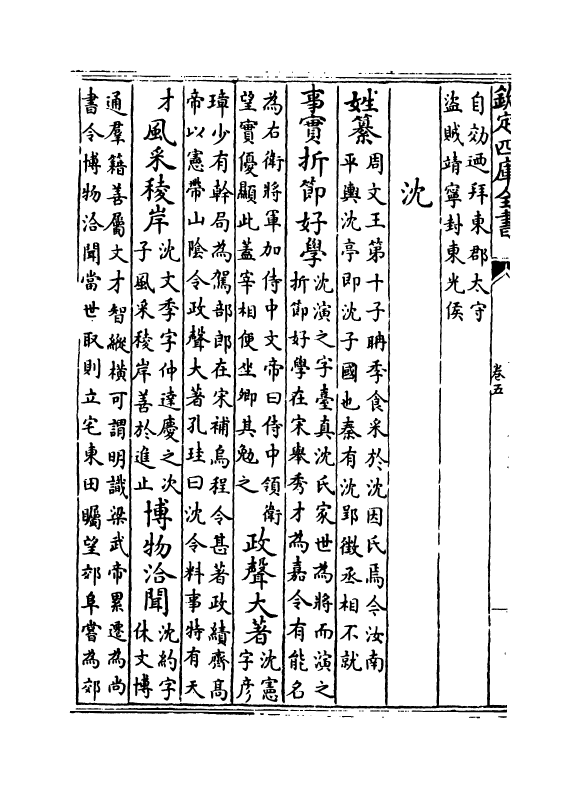 欽定四庫全書
卷五
自効廼拜東郡太守
盜賊靖寧封東光侯
沈
姓纂周文王第十子聃季食采於沈因氏焉今汝南
平輿沈亭即沈子國也秦有沈郢徵丞相不就
事實折節好學沈演之字臺真沈氏家世為將而演之
折節好學在宋舉秀才為嘉令有能名
為右衛將軍加侍中文帝曰侍中領衛
望實優顯此蓋宰相便坐卿其勉之
政聲大著沈憲
字彥
璋少有幹局為駕部郎在宋補烏程令甚著政績齊髙
帝以憲帶山陰令政聲大著孔珪曰沈令料事特有天
才風采稜岸沈文季字仲達慶之次
子風采稜岸善於進止
博物洽聞沈約字
休文博
通羣籍善屬文才智縱横可謂明識梁武帝累遷為尚
書令博物洽聞當世取則立宅東田矚望郊阜嘗為郊